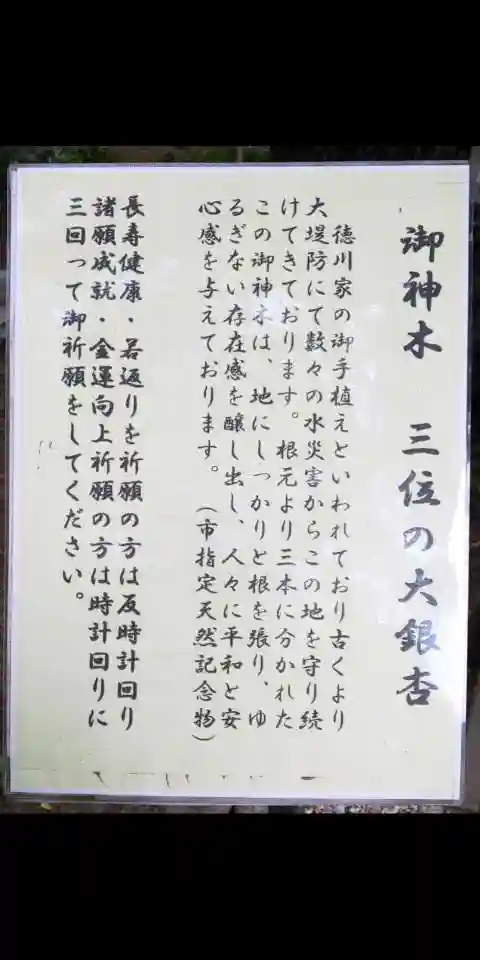 御神木 三位の大銀杏
徳川家の御手植えといわれており古くより
大堤防にて数々の水災害からこの地を守り続
けてきております。根元より三本に分かれた
この御神木は、地にしっかりと根を張り、ゆ
るぎない存在感を醸し出し、人々に平和と安
心感を与えております。(市指定天然記念物)
長寿健康・若返りを祈願の方は反時計回り
諸願成就・金運向上祈願の方は時計回りに
三回って御祈願をしてください。